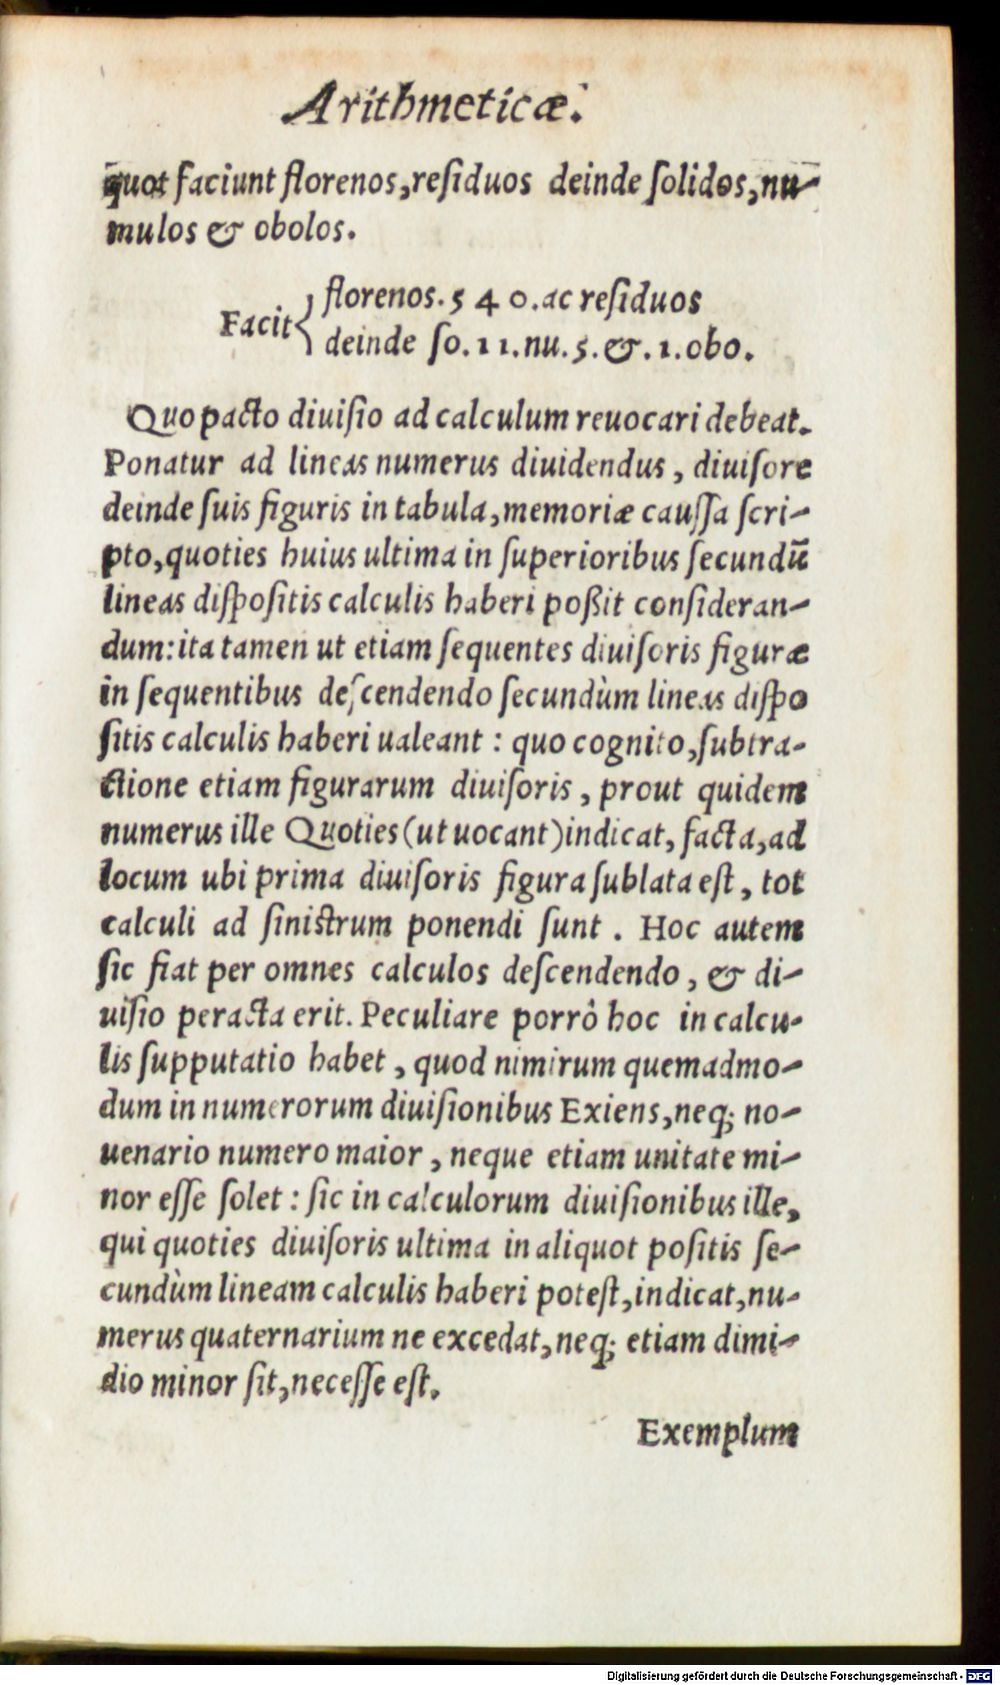 Arithmeticæ.
quot faciunt florenos, reſiduos deinde ſolidos, nu-
mulos & obolos.
florenos. 5 4 0. ac reſiduos
Facit{
deinde ſo. 11. nu. 5. &. 1. obo.
Quo pacto diuiſio ad calculum reuocari debeat.
Ponatur ad lineas numerus diuidendus, diuiſore
deinde ſuis figuris in tabula, memoriæ cauſſa ſcri-
pto, quoties huius ultima in ſuperioribus ſecundũ
lineas diſpoſitis calculis haberi poßit conſideran-
dum: ita tamen ut etiam ſequentes diuiſoris figuræ
in ſequentibus deſcendendo ſecundùm lineas diſpo
ſitis calculis haberi ualeant : quo cognito, ſubtra-
ctione etiam figurarum diuiſoris, prout quidem
numerus ille Quoties (ut uocant) indicat, facta, ad
locum ubi prima diuiſoris figura ſublata eſt, tot
calculi ad ſiniſtrum ponendi ſunt. Hoc autem
ſic fiat per omnes calculos deſcendendo, & di-
uiſio peracta erit. Peculiare porrò hoc in calcu-
lis ſupputatio habet, quod nimirum quemadmo-
dum in numerorum diuiſionibus Exiens, neq; no-
uenario numero maior, neque etiam unitate mi-
nor eſſe ſolet: ſic in calculorum diuiſionibus ille,
qui quoties diuiſoris ultima in aliquot poſitis ſe-
cundùm lineam calculis haberi poteſt, indicat, nu-
merus quaternarium ne excedat, neq; etiam dimi-
dio minor ſit, neceſſe eſt.
Exemplum
Digitalisierung gefördert durch die Deutsche Forschungsgemeinschaft - DFG